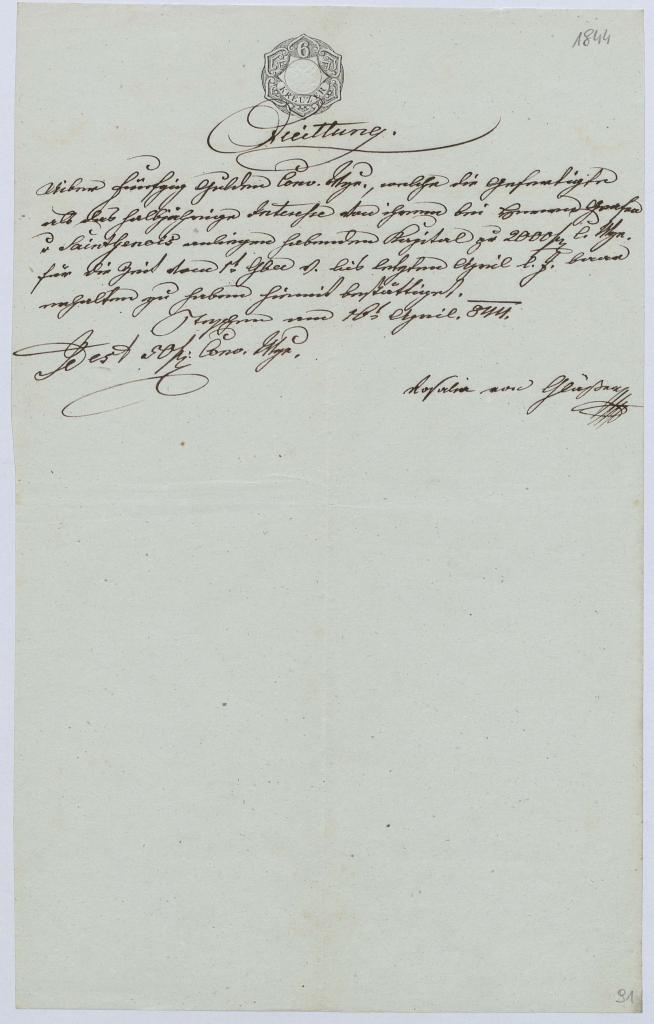 1844
6
KREUZER
Quittung.
Uiber Fünfzig Gulden Conv. Mze., welche die Gefertigte
als das halbjährige Interesse von ihrem bei Herrn Grafen
v Saint Genois anliegen habenden Kapital zu 2000 f C. Mze.
für die Zeit vom 1t 9ber v. bis letzten April l. J. baar
erhalten zu haben hiemit bestättiget.
am 16t April. 844.
Id est 50 f: Conv. Mze.
Rosalia von Gläßer
91